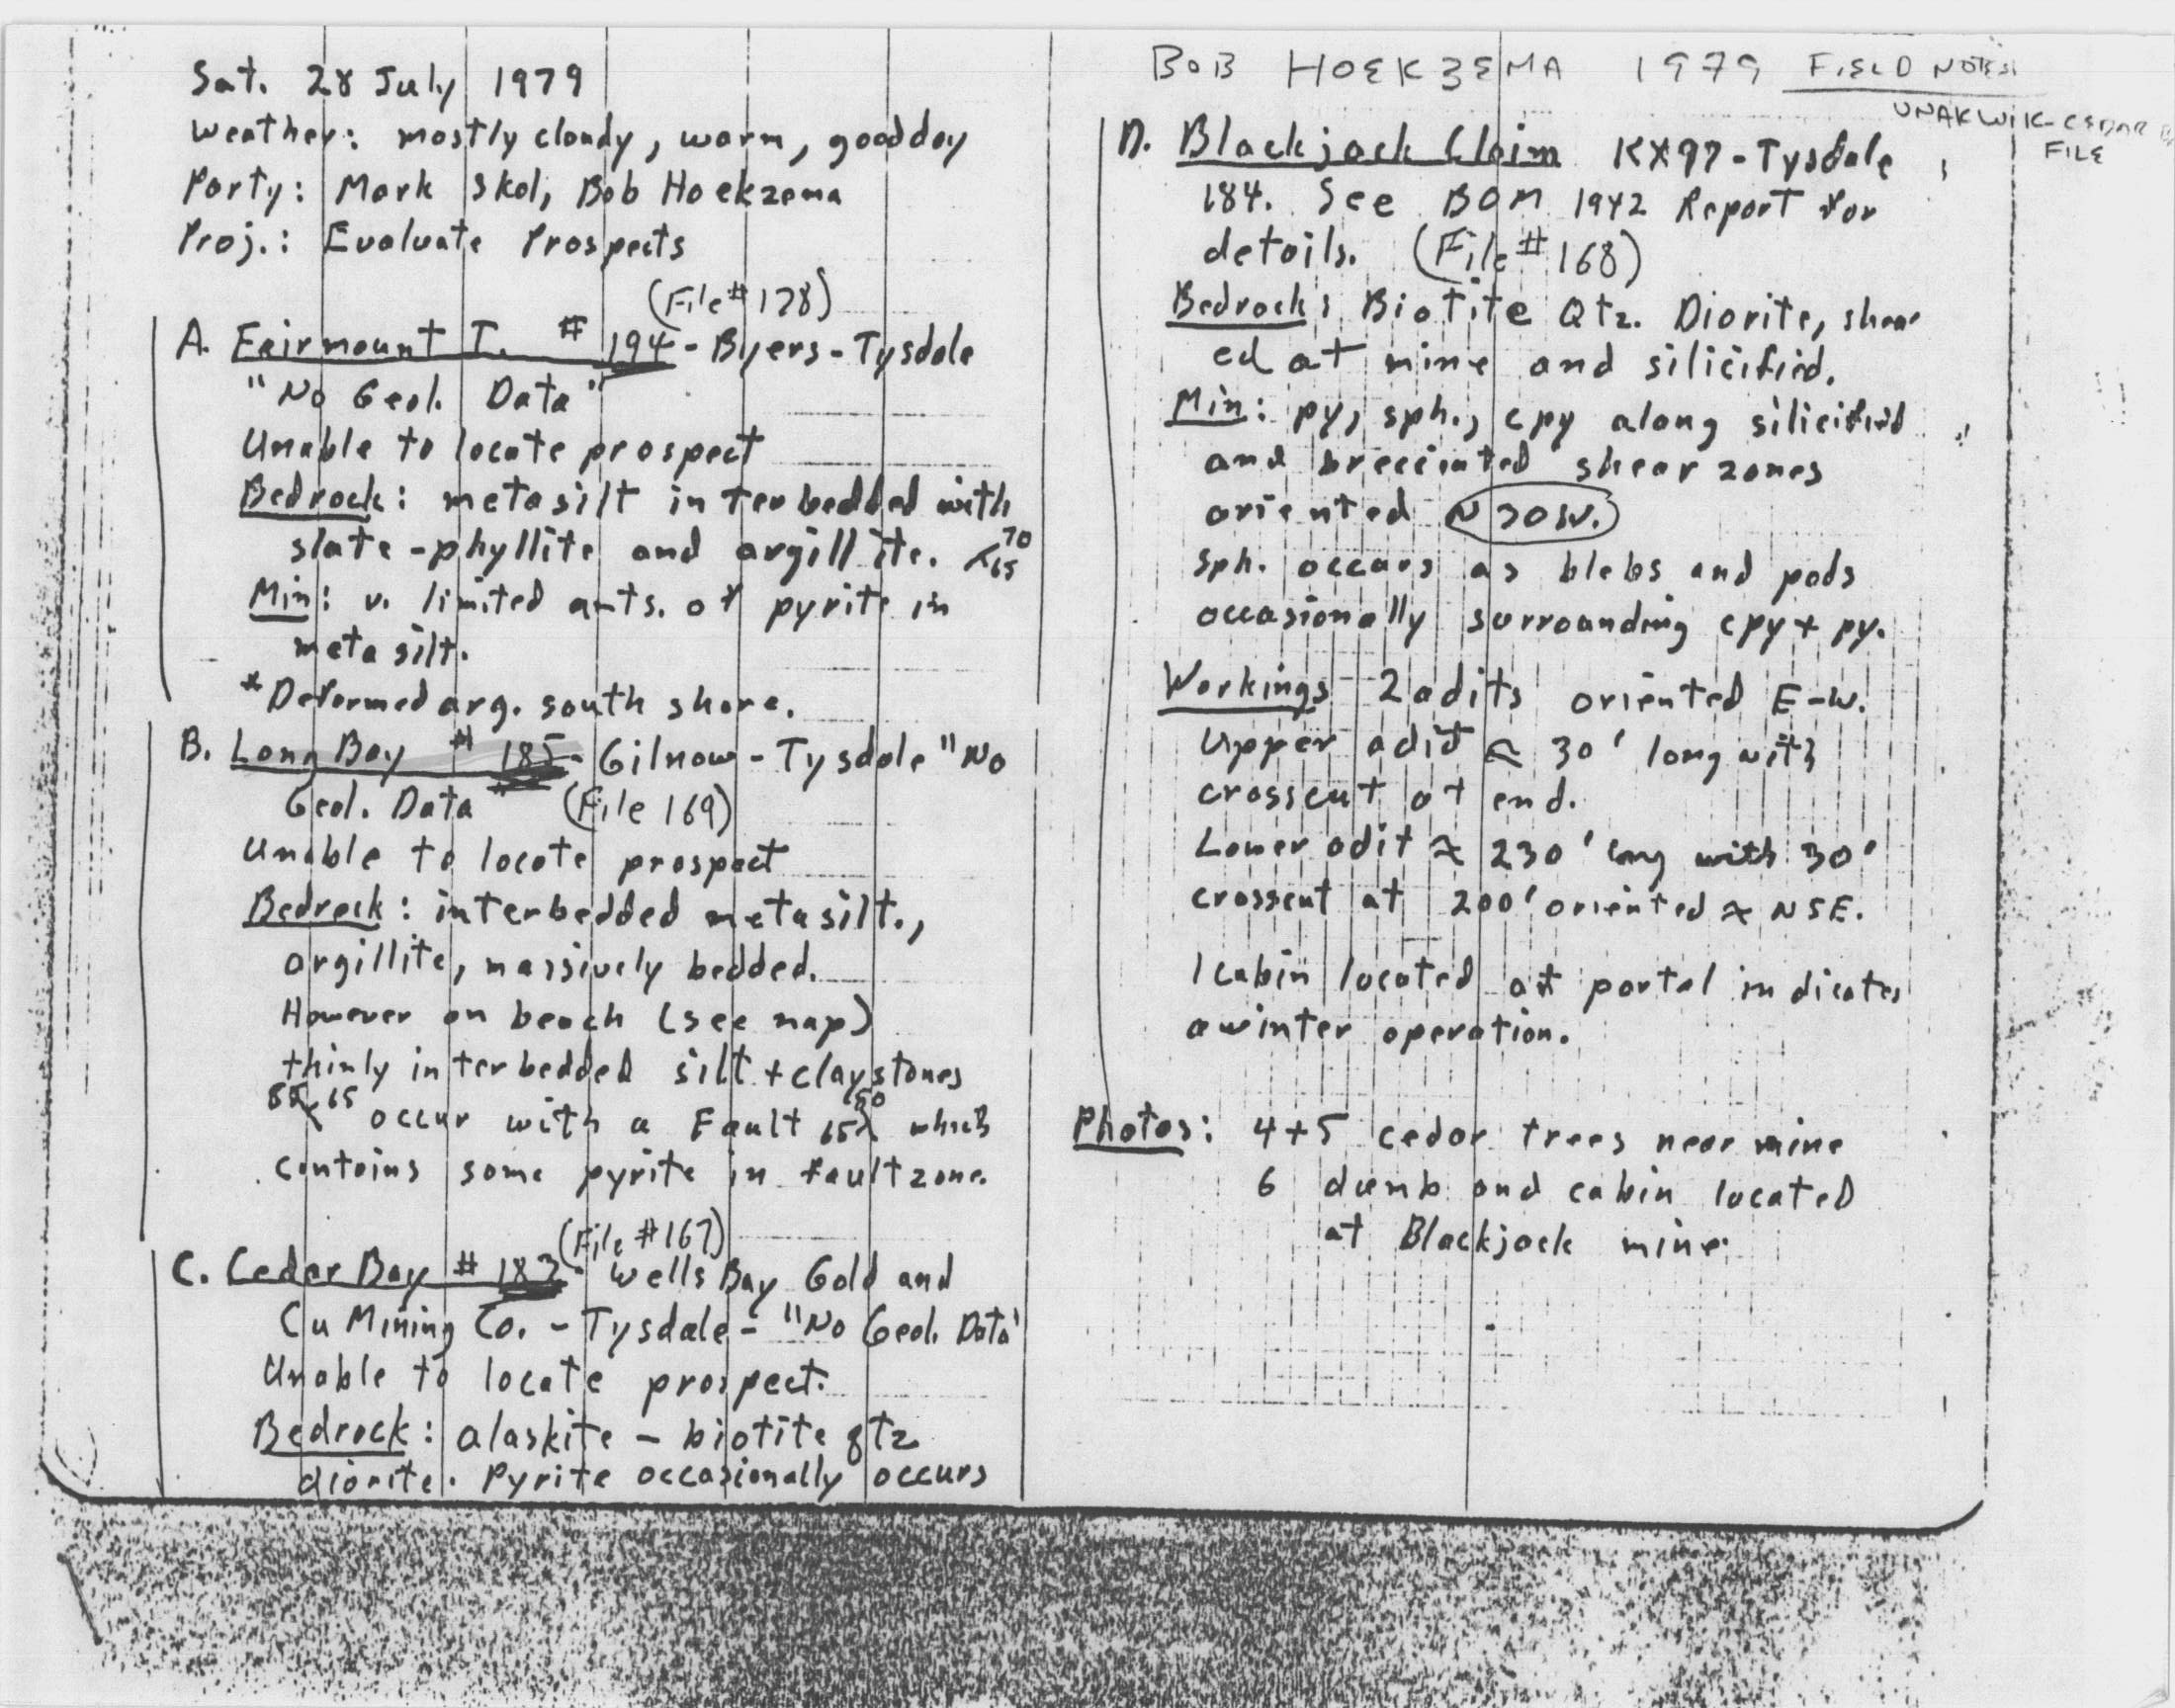 Sat. 28 July 1979
Weather: mostly cloudy, warm, good day
Party: Mark Skol, Bob Hoekzema
Proj.: Evaluate Prospects
(File # 178)
A. Fairmount I. # 194 - Byers - Tysdale
"No Geol. Data"
Unable to locate prospect
Bedrock: metasilt interbedded with
slate-phyllite and argillite. 70 65
Min: v. limited amts. of pyrite in
metasilt.
*Deformed arg. south shore.
B. Long Bay # 185 - Gilnow - Tysdale "No
Geol. Data" (File 169)
Unable to locate prospect
Bedrock: interbedded metasilt.,
argillite, massively bedded.
However on beach (see map)
thinly interbedded silt + claystones
65 occur with a Fault 65 80 which
contains some pyrite in fault zone.
(File #167)
C. Cedar Bay # 183 - Wells Bay Gold and
Cu Mining Co. - Tysdale - "No Geol. Data"
Unable to locate prospect.
Bedrock: alaskite - biotite qtz
diorite. Pyrite occasionally occurs
BOB HOEKZEMA 1979 FIELD NOTES
UNAKWIK-CEDAR B
FILE
D. Blackjack Claim KX97-Tysdale
184. See BOM 1942 Report for
details. (File # 168)
Bedrock: Biotite Qtz. Diorite, shear
ed at mine and silicified.
Min: py, sph., cpy along silicified
and brecciated shear zones
oriented N70W.
sph. occurs as blebs and pods
occasionally surrounding cpy + py.
Workings 2 adits oriented E-W.
Upper adit ≈ 30' long with
crosscut at end.
Lower adit ≈ 230' long with 30'
crosscut at 200' oriented ≈ N5E.
1 cabin located at portal indicates
a winter operation.
Photos: 4+5 cedar trees near mine
6 dump and cabin located
at Blackjack mine